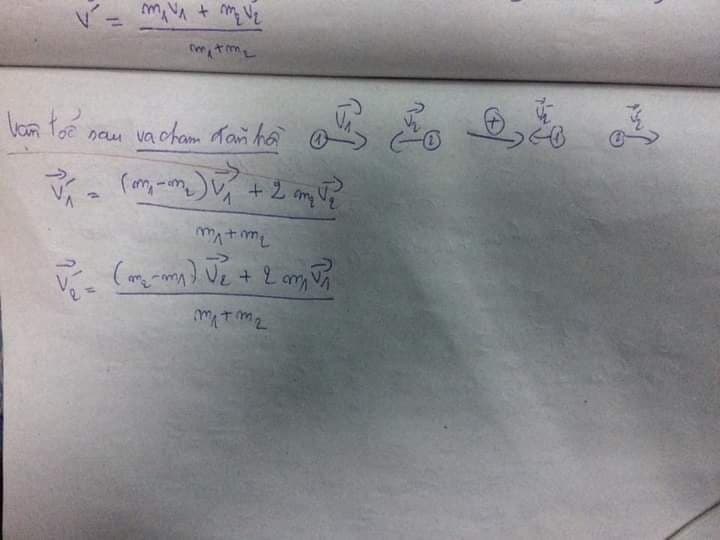 v' = m₁v₁ + m₂v₂ / m₁+m₂
Vận tốc sau va chạm đàn hồi ① v₁⃗ v₂⃗ ② ⊕ v₂⃗ ① ② v₂⃗'
v₁⃗' = (m₁-m₂) v₁⃗ + 2 m₂v₂⃗ / m₁+m₂
v₂⃗' = (m₂-m₁) v₂⃗ + 2 m₁v₁⃗ / m₁+m₂